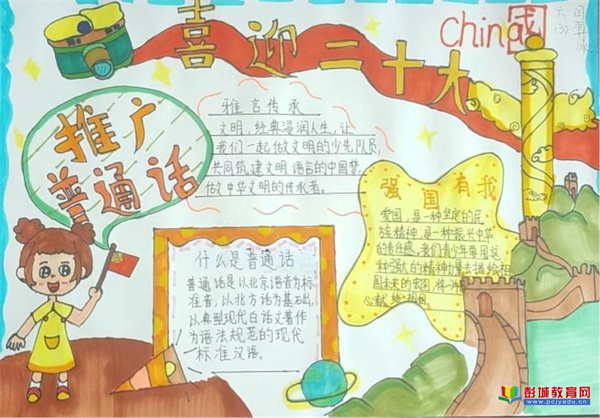 喜迎二十大
China
国
六
(3)
推广
普通话
雅言传承
文明,经典浸润人生,让
我们一起做文明的少先队员,
共同筑建文明语言的中国梦,
做中华文明的传承者。
强国有我
爱国,是一种坚定的民
族精神,是一种振兴中华
的责任感,我们青少年要用这
种强大的精神力量去描绘祖
国未来的宏图,将一
心献给祖国
什么是普通话
普通话是以北京语音为标
准音,以北方话为基础,
以典型现代白话文著作
为语法规范的现代
标准汉语。
彭城教育网
www.pcjyedu.cn